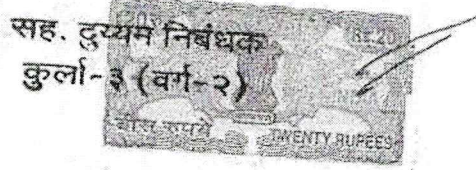 सह. दुय्यम निबंधक
कुर्ला-३ (वर्ग-२)
RS.20
INDIA
बीस रुपये
TWENTY RUPEES